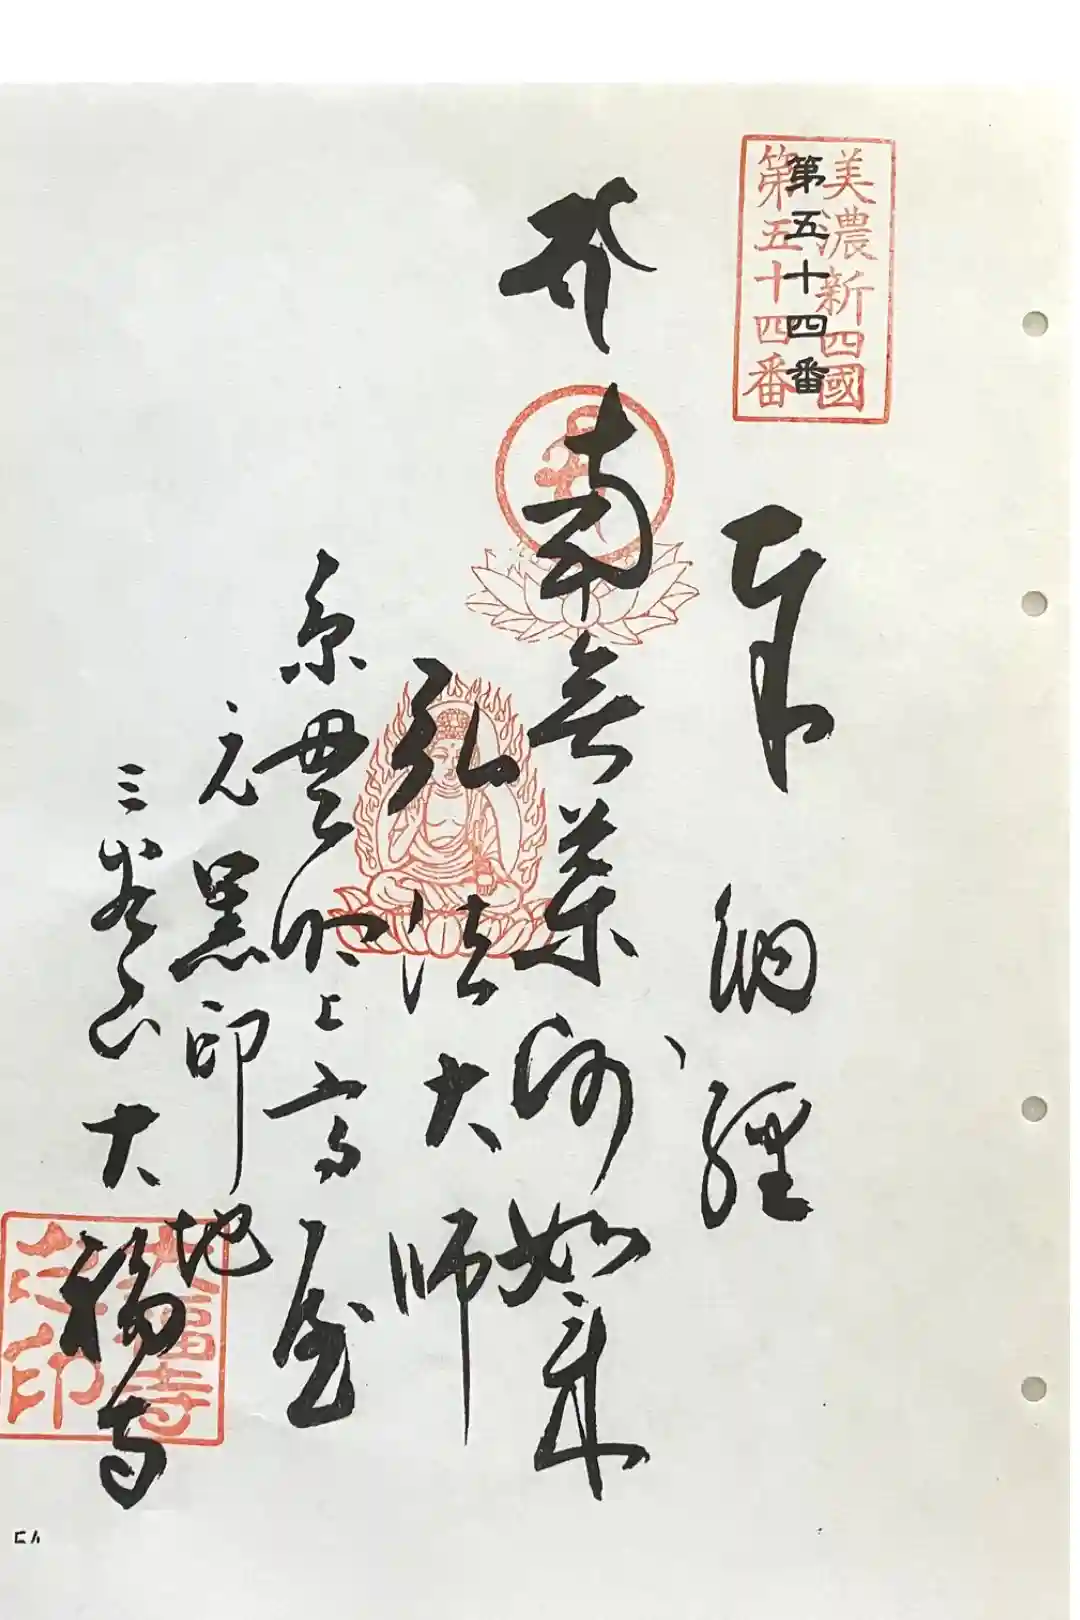 美濃新四國
第五十四番
第五十四番
奉納經
南無薬師如来
弘法大師
糸貫町上高屋
元黒印地
三 山大福寺
大福寺
之印